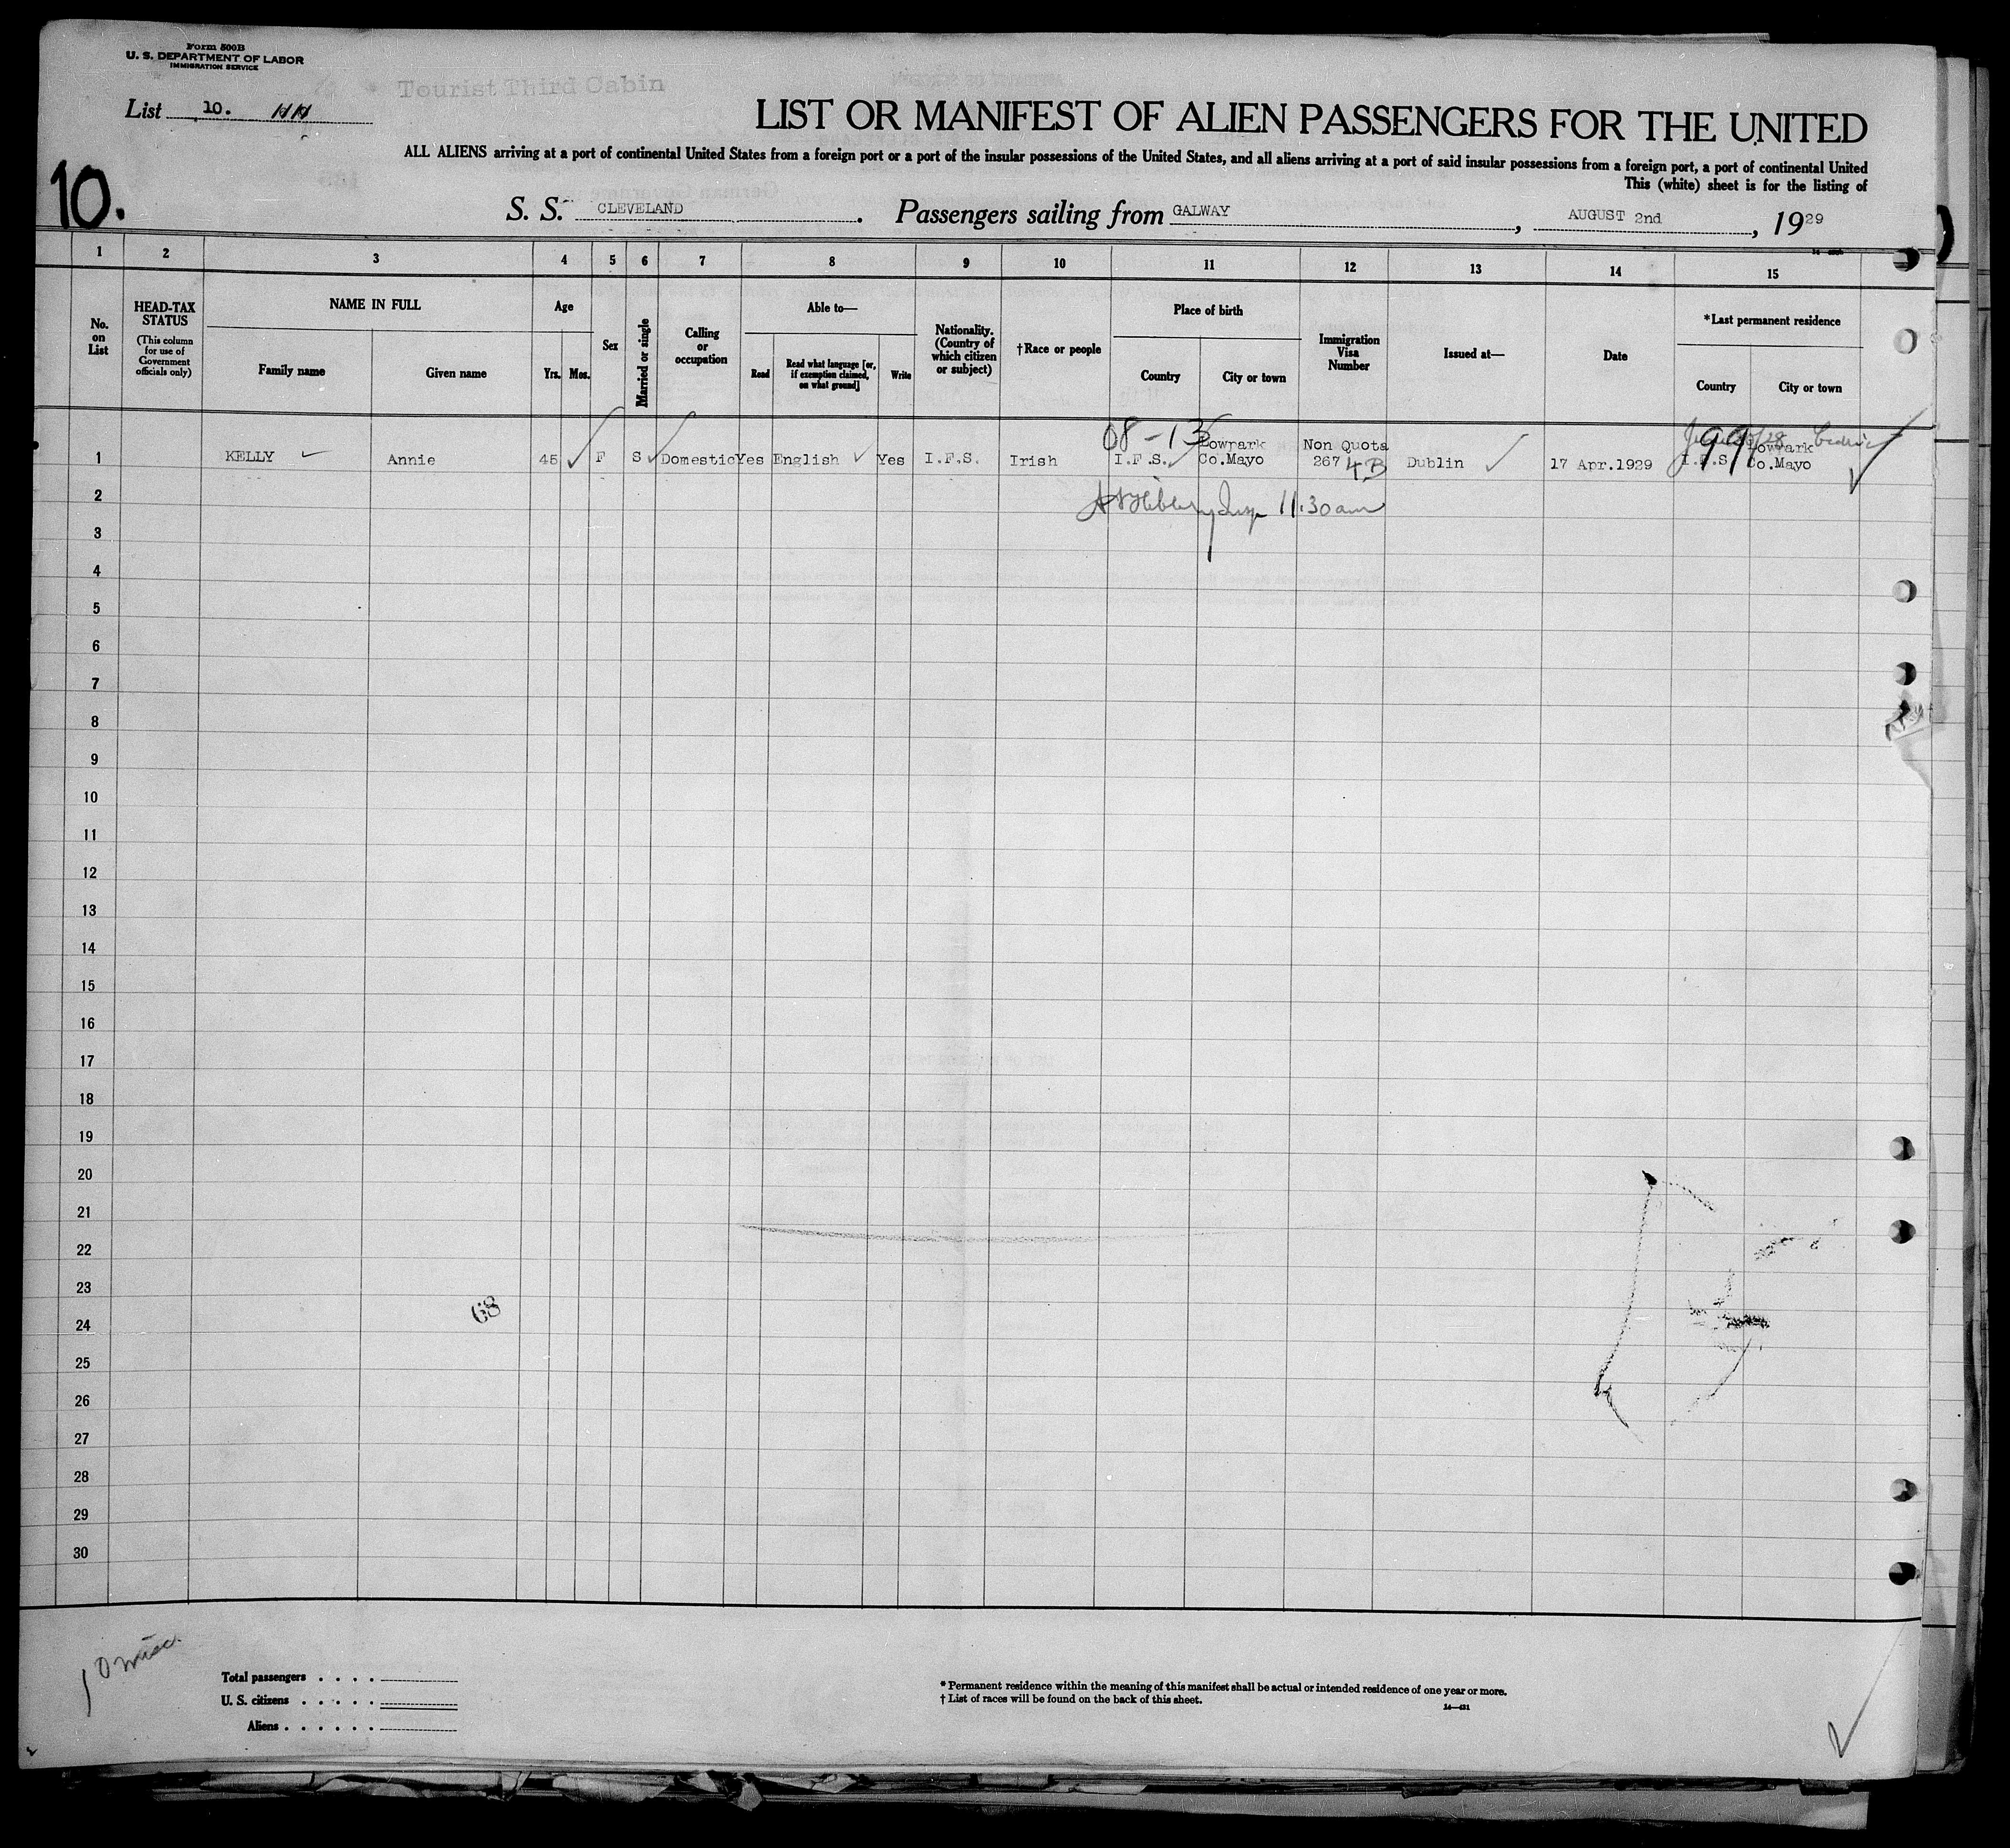 Form 500B
U. S. DEPARTMENT OF LABOR
IMMIGRATION SERVICE
Tourist Third Cabin
List 10.
LIST OR MANIFEST OF ALIEN PASSENGERS FOR THE UNITED
ALL ALIENS arriving at a port of continental United States from a foreign port or a port of the insular possessions of the United States, and all aliens arriving at a port of said insular possessions from a foreign port, a port of continental United
This (white) sheet is for the listing of
10.
S. S. CLEVELAND . Passengers sailing from GALWAY , AUGUST 2nd , 1929
1 2 3 4 5 6 7 8 9 10 11 12 13 14 15
No. on List
HEAD-TAX STATUS
(This column for use of Government officials only)
NAME IN FULL
Family name
Given name
Age
Yrs. Mos.
Sex
Married or single
Calling or occupation
Able to—
Read
Read what language [or, if exemption claimed, on what ground]
Write
Nationality. (Country of which citizen or subject)
†Race or people
Place of birth
Country
City or town
Immigration Visa Number
Issued at—
Date
*Last permanent residence
Country
City or town
08-13
99
1 KELLY Annie 45 F S Domestic Yes English Yes I.F.S. Irish I.F.S. Lowpark Co.Mayo Non Quota 267 4B Dublin 17 Apr.1929 I.F.S Lowpark Co.Mayo
2
11.30am
3
4
5
6
7
8
9
10
11
12
13
14
15
16
17
18
19
20
21
22
23
24
68
25
26
27
28
29
30
Total passengers . . . .
U. S. citizens . . . . .
Aliens . . . . . .
* Permanent residence within the meaning of this manifest shall be actual or intended residence of one year or more.
† List of races will be found on the back of this sheet.
14—431